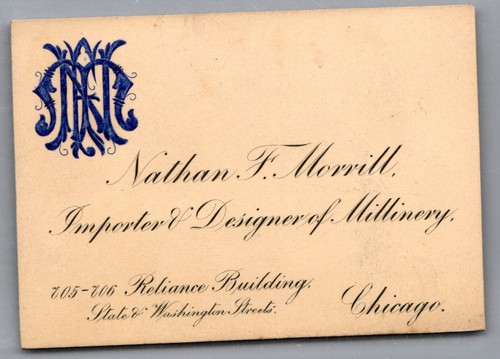 NFM
Nathan F. Morrill,
Importer & Designer of Millinery,
705-706 Reliance Building.
State & Washington Streets.
Chicago.